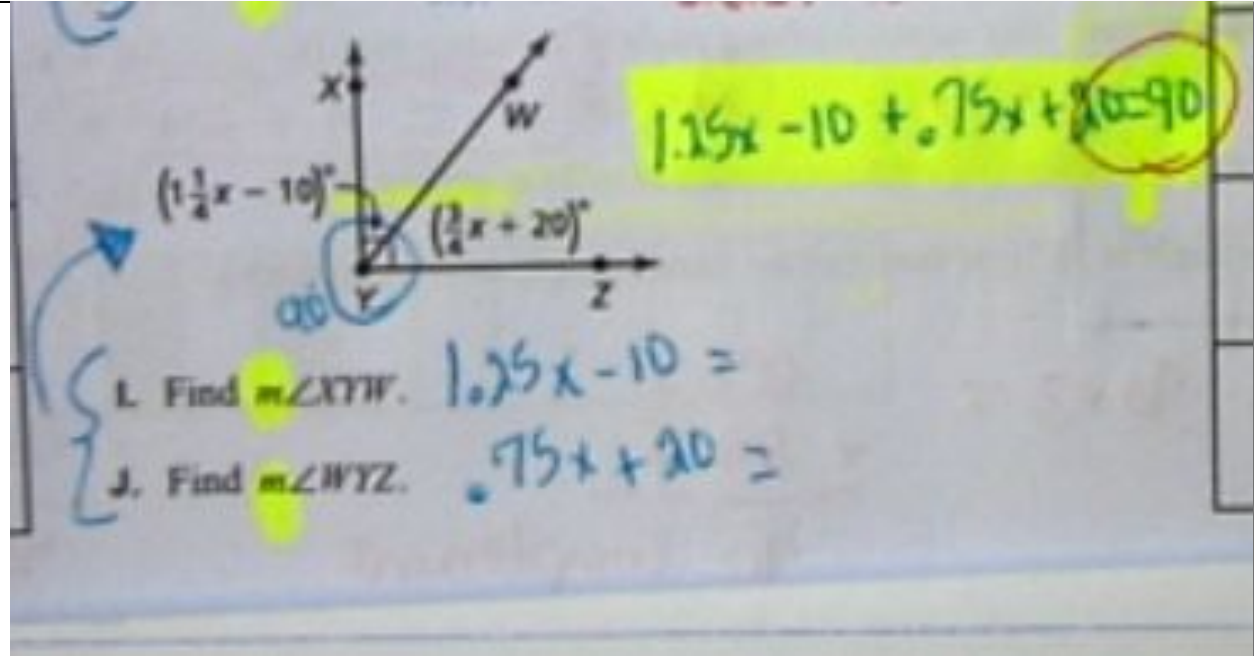 X
W
1.25x - 10 + .75x + 20=90
(1 1/4 x - 10)°
(3/4 x + 20)°
90
Y
Z
I. Find m∠XYW. 1.25x - 10 =
J. Find m∠WYZ. .75x + 20 =